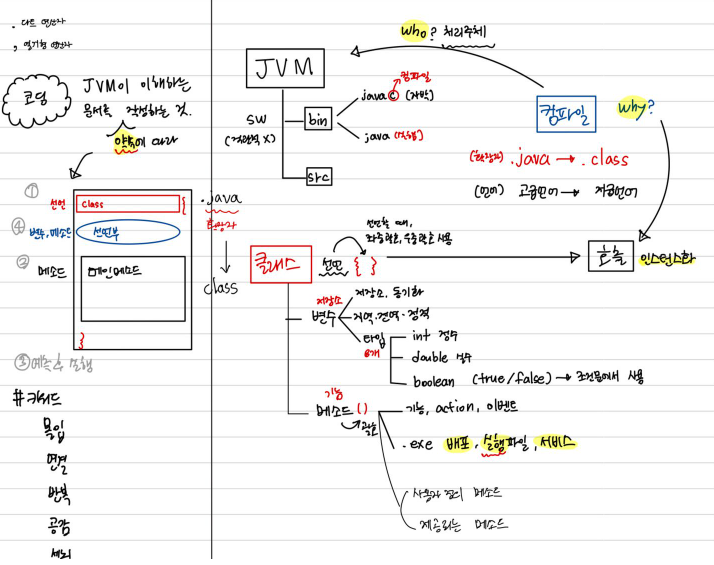 . 다트 연산자
, 열거형 연산자
코딩
JVM이 이해하는
문서를 작성하는 것.
약속에 따라
①
선언
class {
.java
확장자
class
④
변수, 메소드
선언부
②
메소드
메인메소드
}
③ 예측 후 실행
#키워드
몰입
연결
반복
공감
세뇌
who? 처리주체
JVM
컴파일
javac (자박)
SW
(직관력 X)
bin
java (실행)
src
컴파일
why?
(확장자) .java → .class
(언어) 고급언어 → 저급언어
선언할 때,
좌중괄호, 우중괄호 사용
클래스
선언 { }
호출
인스턴스화
저장소
변수
저장소, 동기화
지역·전역·정적
타입
8개
int 정수
double 실수
boolean (true/false) → 조건문에서 사용
기능
메소드 ( )
기능, action, 이벤트
.exe 배포, 실행파일, 서비스
사용자 정의 메소드
제공되는 메소드